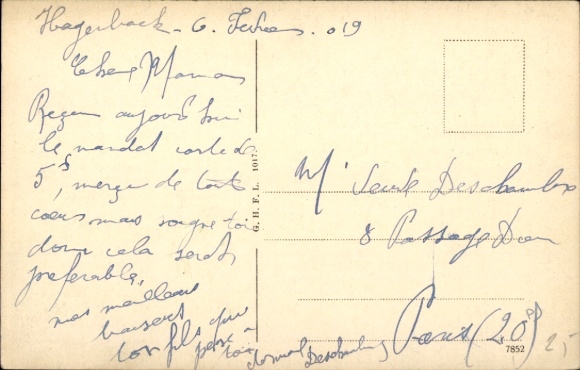 Hagerback - 6 Février 019
Chere Maman
Reçu aujourd'hui
le mandat carte de
5f, merci de tout
cœur mais soigne toi
donc cela serait
preferable,
mes meilleurs
baisers
ton fils qui
pense a
toi
Deschamps
G. H. F. L. 1017
Mr
Deschamps
8 Passage Dieu
Paris (20e)
7852
2,-